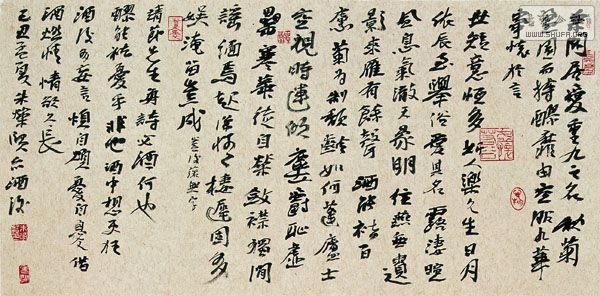 余閒居愛重九之名秋菊
盈園而持醪靡由空服九華
寄懷於言
世短意恒多斯人樂久生日月
依辰至舉俗愛其名露淒暄
風息氣澈天象明往燕無遺
影來雁有餘聲酒能祛百
慮菊為制頹齡如何蓬廬士
空視時運傾塵爵恥虛
罍寒華徒自榮斂襟獨閒
謠緬焉起深情棲遲固多
娛淹留豈成
豈後脫無字
靖節先生每詩必酒何也
醪能祛憂乎非也酒中想
酒後可妄言煩自煩憂自憂借
酒燃情情欲久長
己丑孟夏朱華賢酒後
WWW.SHUFA.COM